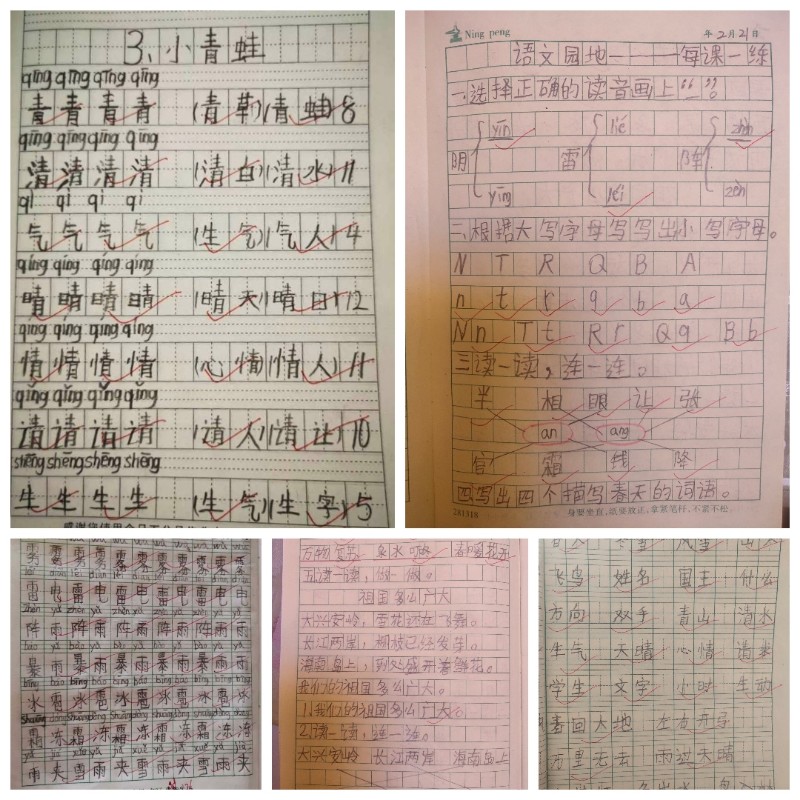 3、小青蛙
qīng qīng qīng qīng
青青青青(青草)(青蛙)8
qīng qīng qīng qīng
清清清清(清白)(清水)11
qì qì qì qì
气气气气(生气)(气人)4
qíng qíng qíng qíng
晴晴晴晴(晴天)(晴日)12
qíng qíng qíng qíng
情情情情(心情)(情人)11
qǐng qǐng qǐng qǐng
请请请请(请人)(请让)10
shēng shēng shēng shēng
生生生生(生气)(生字)5
Ning peng
年2月21日
语文园地一———每课一练
一、选择正确的读音画上“ ”。
yīn lié zhèn
明 雷 阵
yīng léi zèn
二、根据大写字母写写出小写字母。
N T R Q B A
n t r q b a
Nn Tt Rr Qq Bb
三、读一读,连一连。
半 相 眼 让 张
an ang
官 霜 线 降
四、写出四个描写春天的词语。
身要坐直,纸要放正,拿紧笔杆,不紧不松。
雷电雷电雷电雷电
zhèn yǔ zhèn yǔ zhèn yǔ
阵雨阵雨阵雨阵雨
暴雨暴雨暴雨暴雨
冰雹冰雹冰雹冰雹冰
霜冻霜冻霜冻霜冻
雨夹雪雨夹雪雨夹
万物复苏 泉水叮咚 春暖花开
五、读一读,做一做。
祖国多么广大
大兴安岭,雪花还在飞舞。
长江两岸,柳枝已经发芽。
海南岛上,到处盛开着鲜花。
我们的祖国多么广大。
1、我们的祖国多么广大。
2、读一读,连一连。
大兴安岭 长江两岸 海南岛上
飞鸟 姓名 国王 什么
方向 双手 青山 清水
生气 天晴 心情 请求
学生 文字 小时 生动
春回大地 左右开弓
万里无云 雨过天晴